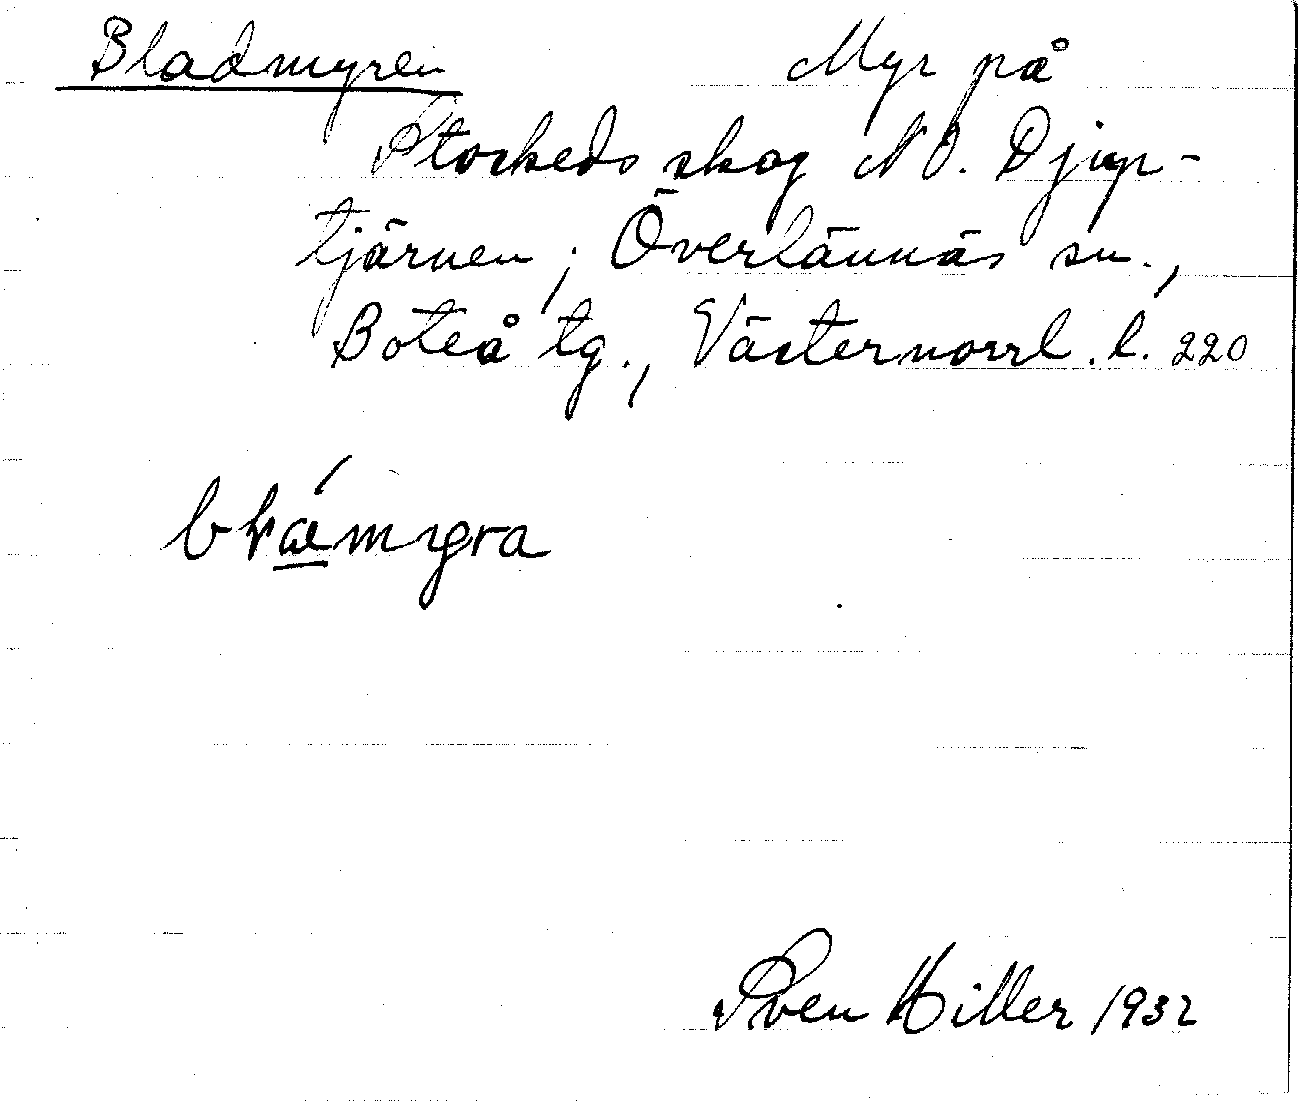 Bladmyren Myr på
Stockeds skog NO. Djup-
tjärnen; Överlännäs sn.,
Boteå tg., Västernorrl. l. 220
Sven Hiller 1932